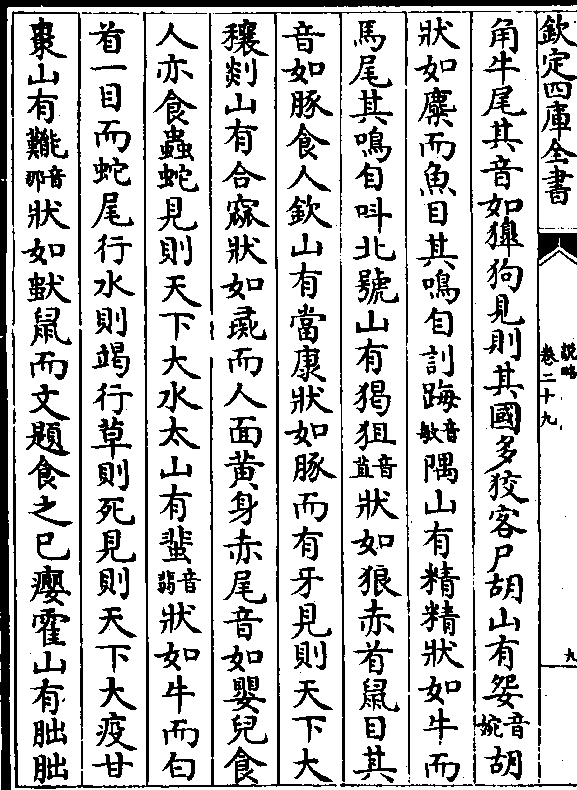 欽定四庫全書
說略
卷二十九
九
角牛尾其音如獋狗見則其國多狡客尸胡山有妴音婉胡
狀如麋而魚目其鳴自訓踇音敏隅山有精精狀如牛而
馬尾其鳴自叫北號山有猲狙音苴狀如狼赤首鼠目其
音如豚食人欽山有當康狀如豚而有牙見則天下大
穰剡山有合窳狀如彘而人面黄身赤尾音如嬰兒食
人亦食蟲蛇見則天下大水太山有蜚音翡狀如牛而白
首一目而蛇尾行水則竭行草則死見則天下大疫甘
棗山有㔮音那狀如鼣鼠而文題食之已癭霍山有朏朏